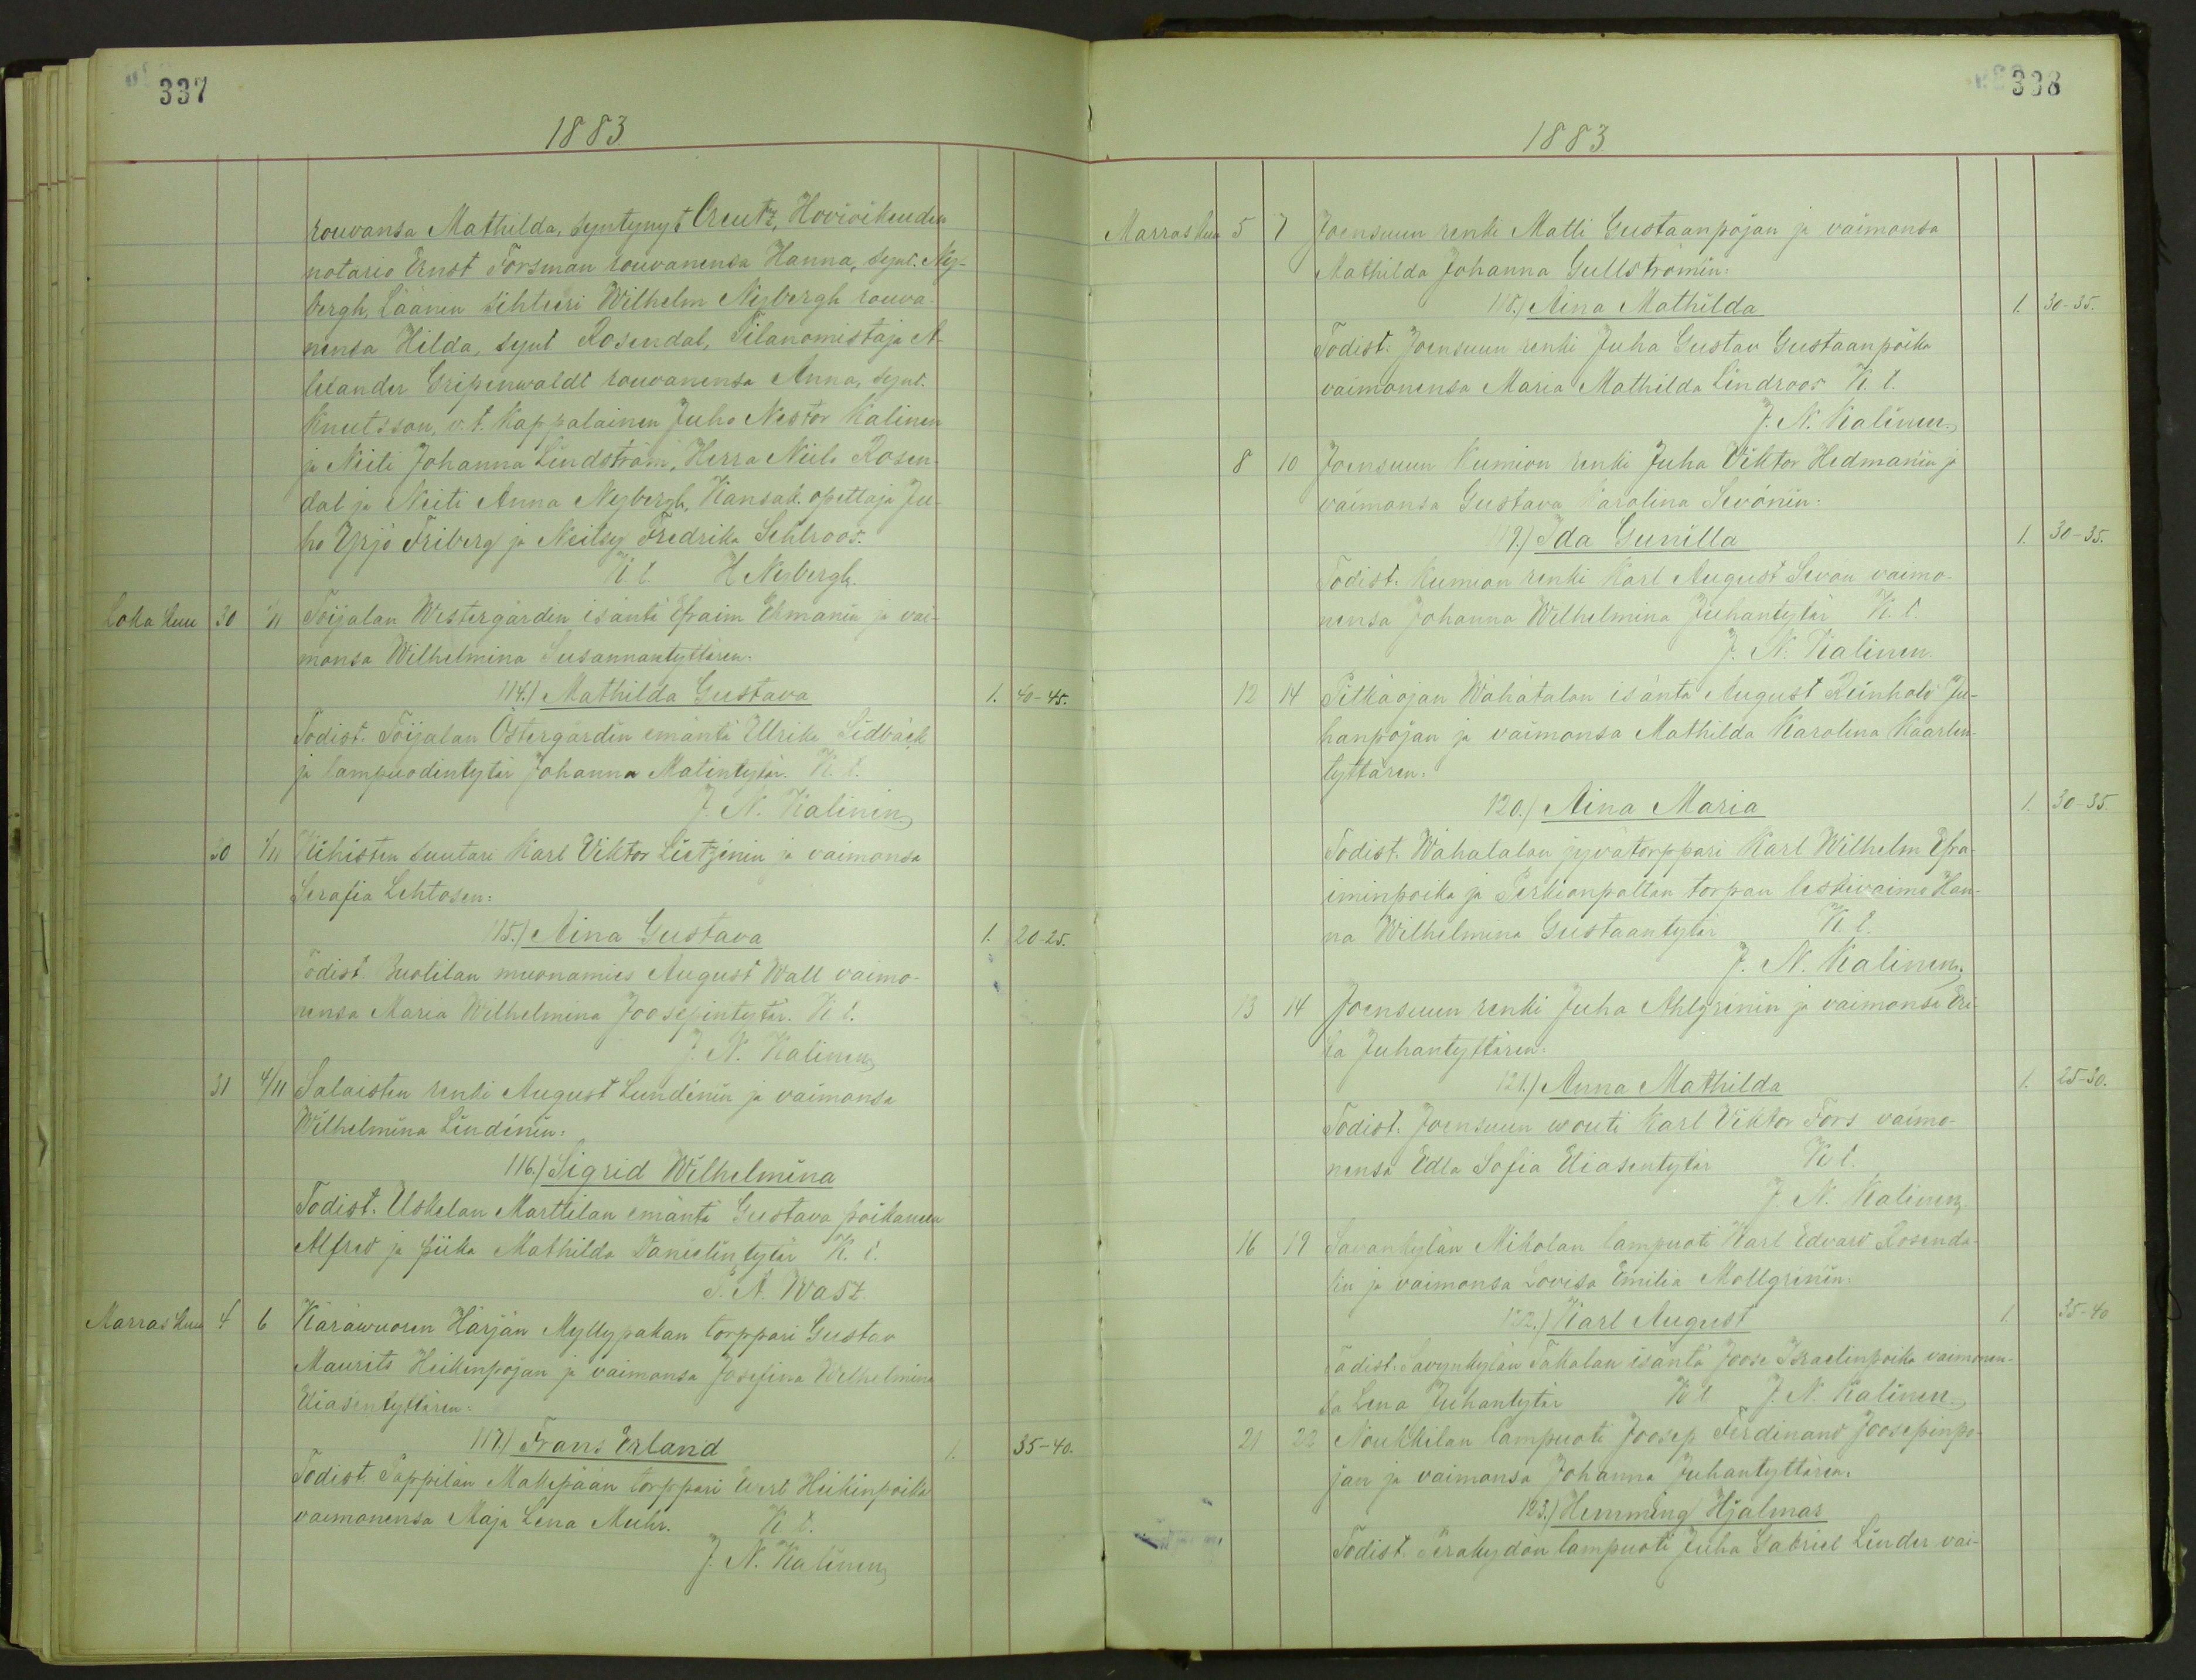 337
1883
rouvansa Mathilda, syntynyt Creutz, Hovioikeuden
notario Ernst Forsman rouvanensa Hanna, synt. Ny-
bergh, Läänin sihteeri Wilhelm Nybergh rouva-
nensa Hilda, synt Rosendal, Tilanomistaja A-
lexander Gripenwaldt rouvanensa Anna, synt.
Knutsson, v. t. Kappalainen Juho Nestor Kalinen
ja Neiti Johanna Lindström, Herra Niilo Rosen-
dal ja Neiti Anna Nybergh, Kansak. opettaja Ju-
ho Yrjö Friberg ja Neitsy Fredrika Sehlroos.
K t. H Nybergh.
Loka kuu 30 1/11 Toijalan Westergårdin isäntä Efraim Ekmanin ja vai-
monsa Wilhelmina Susannantyttären:
114.) Mathilda Gustava 1. 40-45.
Todist. Toijalan Östergårdin emäntä Ulrika Lidbäck
ja lampuodintytär Johanna Matintytär. K. t.
J. N. Kalinen
30 1/11 suutari Karl Viktor Lietzénin ja vaimonsa
Serafia Lehtosen:
115.) Aina Gustava 1. 20-25.
Todist. muonamies August Wall vaimo-
nensa Maria Wilhelmina Joosepintytär. K t.
J. N. Kalinen
31 4/11 Salaisten renki August Lundénin ja vaimonsa
Wilhelmina Lindénin:
116.) Sigrid Wilhelmina
Todist. Uskelan Marttilan emäntä Gustava poikaneen
Alfred ja piika Mathilda Danielintytär K. t.
Marraskuu 4 6 Käräwuoren Härjän Myllypakan torppari Gustav
Maurits Heikinpojan ja vaimonsa Josefina Wilhelmina
Eliasentyttären:
117.) Frans Erland 1. 35-40.
Todist. Pappilan Makepään torppari Evert Heikinpoika
vaimonensa Maja Lena Muhr. K t.
J. N. Kalinen
338
1883
Marraskuu 5 7 Joensuun renki Matti Gustaanpojan ja vaimonsa
Mathilda Johanna Gullströmin:
118.) Aina Mathilda 1. 30-35.
Todist. Joensuun renki Juha Gustav Gustaanpoika
vaimonensa Maria Mathilda Lindroos K. t.
J. N. Kalinen
8 10 Joensuun Kumion renki Juha Viktor Hedmanin ja
vaimonsa Gustava Karolina Sevónin:
119.) Ida Gunilla 1. 30-35.
Todist. Kumion renki Karl August Sevon vaimo-
nensa Johanna Wilhelmina Juhantytär K. t.
J. N. Kalinen
12 14 Pitkäojan Wähätalon isäntä August Reinhold Ju-
hanpojan ja vaimonsa Mathilda Karolina Kaarlen-
tyttären:
120.) Aina Maria 1. 30-35.
Todist. Wähätalon jyvätorppari Karl Wilhelm Efra-
iminpoika ja Perkionpaltan torpan leskivaimo Han-
na Wilhelmina Gustaantytär K. t.
J. N. Kalinen
13 14 Joensuun renki Juha Ahlgrénin ja vaimonsa Eri-
ka Juhantyttären:
121.) Anna Mathilda 1. 25-30.
Todist. Joensuun wouti Karl Viktor Fors vaimo-
nensa Edla Sofia Eliasentytär K t.
J. N. Kalinen
16 19 Savonkylän Mikolan lampuoti Karl Edvard Rosenda-
lin ja vaimonsa Lovisa Emilia Mollgrénin:
122.) Karl August 1 35-40
Todist. Savynkylän Takalan isäntä Joose Israelinpoika vaimonen-
sa Lena Juhantytär K t J. N. Kalinen
21 23 Noukkilan lampuoti Joosep Ferdinand Joosepinpo-
jan ja vaimonsa Johanna Juhantyttären:
123.) Hemming Hjalmar
Todist. lampuoti Juha Gabriel Linder vai-